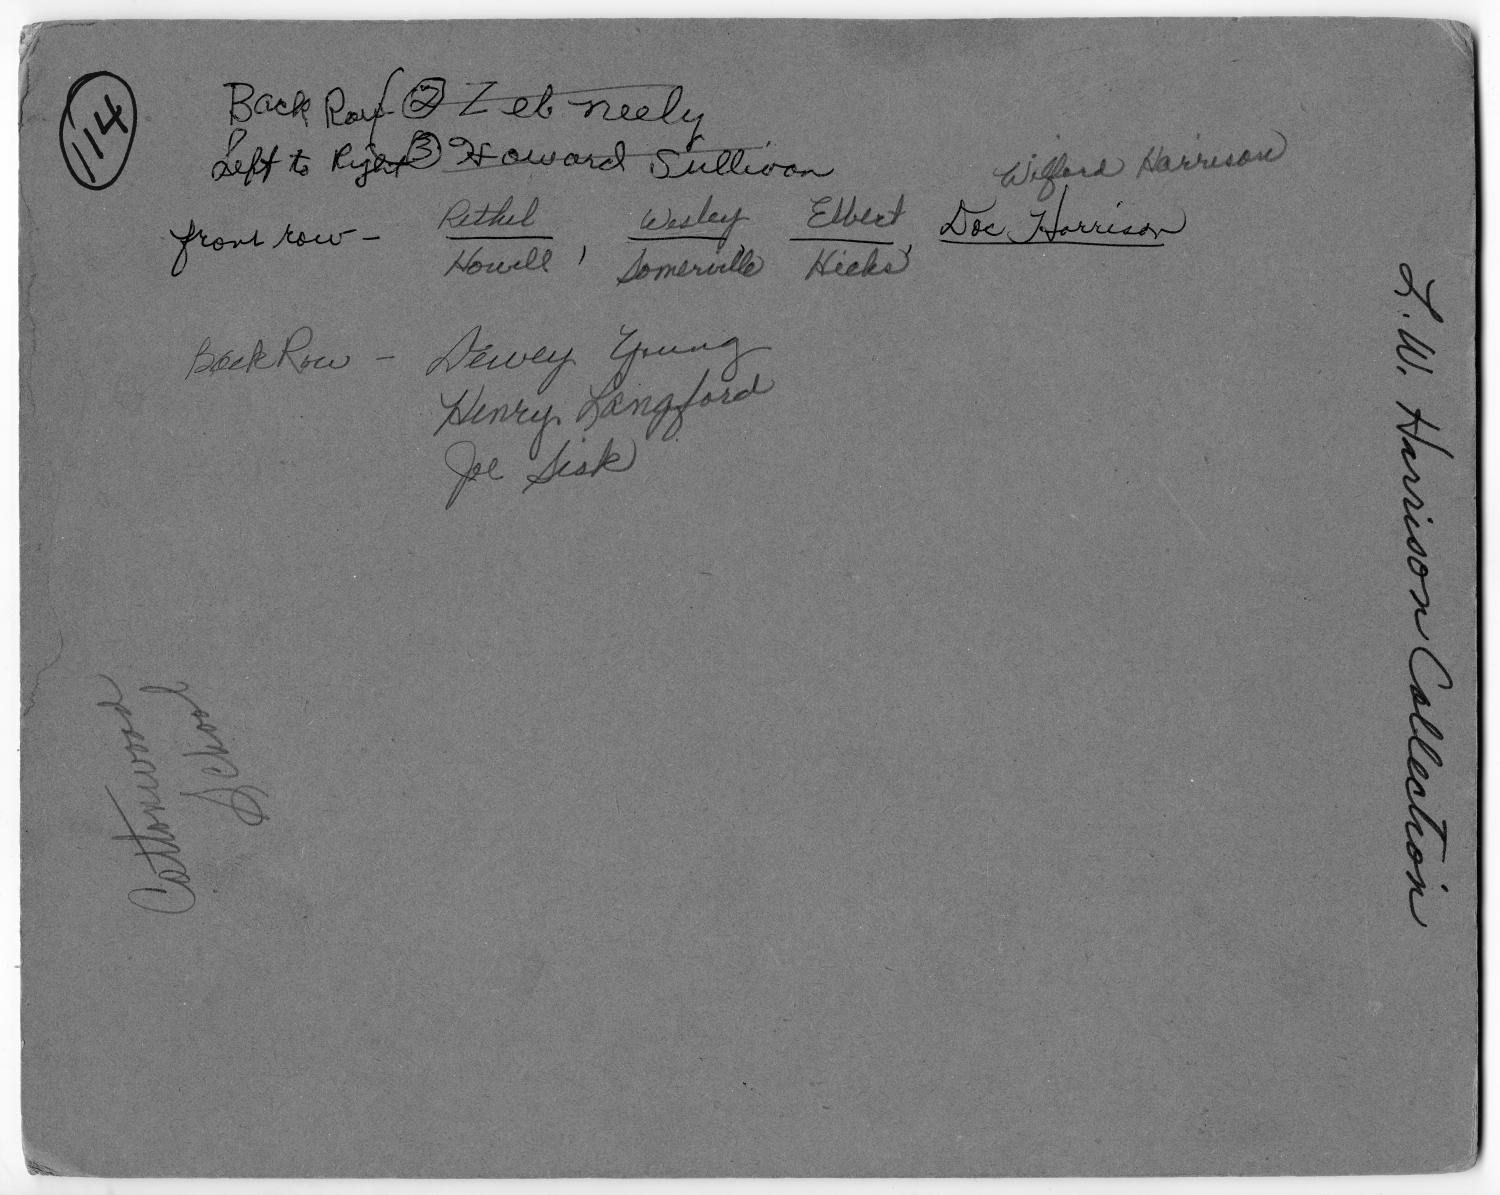 114
Back Row { ② Zeb Neely
Left to Right ③ Howard Sullivan
Wilford Harrison
front row - Rethel Howell, Wesley Somerville, Elbert Hicks, Doc Harrison
Back Row - Dewey Young
Henry Langford
Joe Sisk
Cottonwood
School
L. W. Harrison Collection